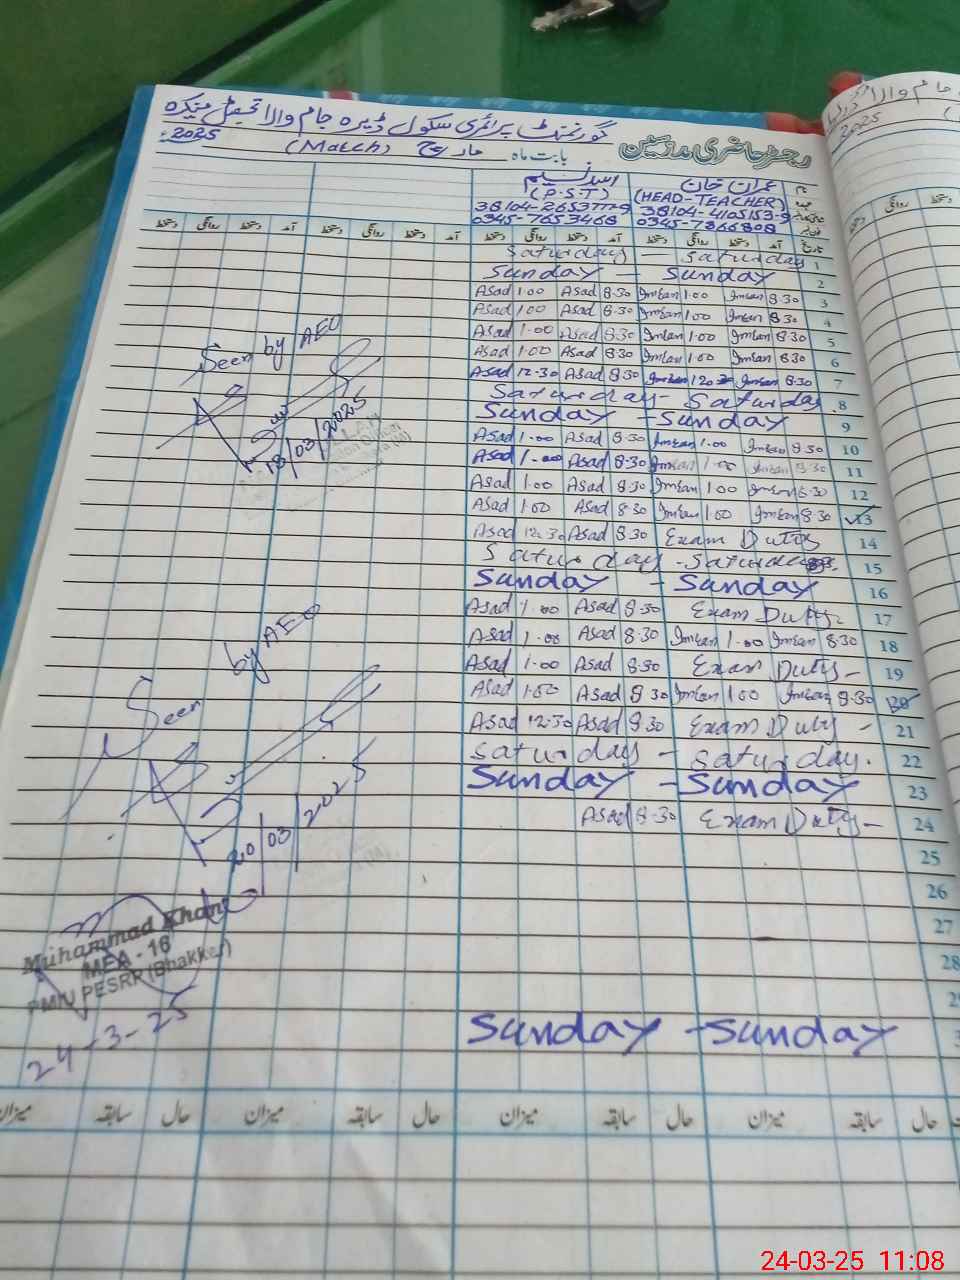 گورنمنٹ پرائمری سکول ڈیرہ جام والا تحصیل منکیرہ
رجسٹر حاضری مدرسین بابت ماہ مارچ (March) 2025
عمران خان اسد نسیم
(HEAD-TEACHER) (P.S.T)
38104-4105153-9 38104-2653777-9
0345-7866808 0345-7653468
تاریخ آمد دستخط روانگی دستخط آمد دستخط روانگی دستخط آمد دستخط روانگی دستخط آمد دستخط روانگی دستخط
Saturday — Saturday 1
Sunday — Sunday 2
Asad 1.00 Asad 8.30 Imran 1.00 Imran 8.30 3
Asad 1.00 Asad 8.30 Imran 1.00 Imran 8.30 4
Asad 1.00 Asad 8.30 Imran 1.00 Imran 8.30 5
Asad 1.00 Asad 8.30 Imran 1.00 Imran 8.30 6
Asad 12.30 Asad 8.30 Imran 12.30 Imran 8.30 7
Saturday - Saturday 8
Sunday - Sunday 9
Asad 1.00 Asad 8.30 Imran 1.00 Imran 8.30 10
Asad 1.00 Asad 8.30 Imran 1.00 Imran 8.30 11
Asad 1.00 Asad 8.30 Imran 1.00 Imran 8.30 12
Asad 1.00 Asad 8.30 Imran 1.00 Imran 8.30 13
Asad 12.30 Asad 8.30 Exam Duty 14
Saturday - Saturday 15
Sunday - Sunday 16
Asad 1.00 Asad 8.30 Exam Duty - 17
Asad 1.00 Asad 8.30 Imran 1.00 Imran 8.30 18
Asad 1.00 Asad 8.30 Exam Duty - 19
Asad 1.00 Asad 8.30 Imran 1.00 Imran 8.30 20
Asad 12.30 Asad 8.30 Exam Duty - 21
Saturday - Saturday. 22
Sunday - Sunday 23
Asad 8.30 Exam Duty - 24
25
26
27
28
Sunday - Sunday
Seen by AEO
18/03/2025
Seen by AEO
20/03/2025
Muhammad Khan
MEA - 16
PMIU PESRP (Bhakker)
24-3-25
حال سابقہ میزان حال سابقہ میزان حال سابقہ میزان حال سابقہ میزان
2025
24-03-25 11:08